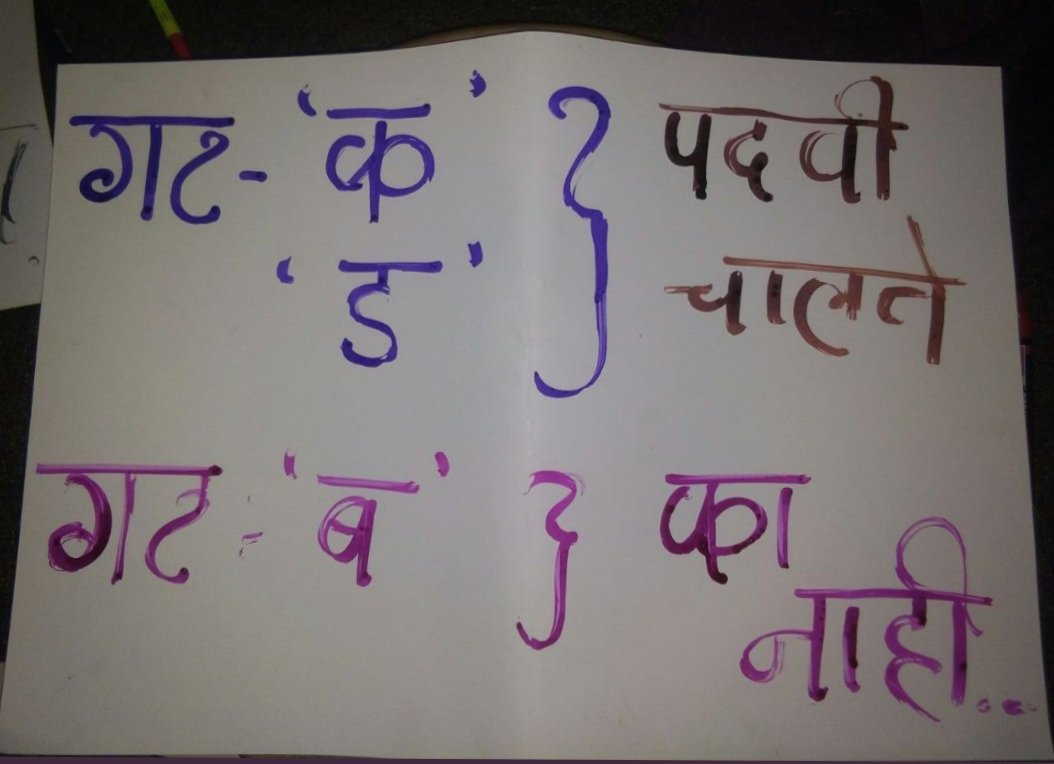 गट - 'क' } पदवी
'ड' } चालते
गट - 'ब' } का
नाही..